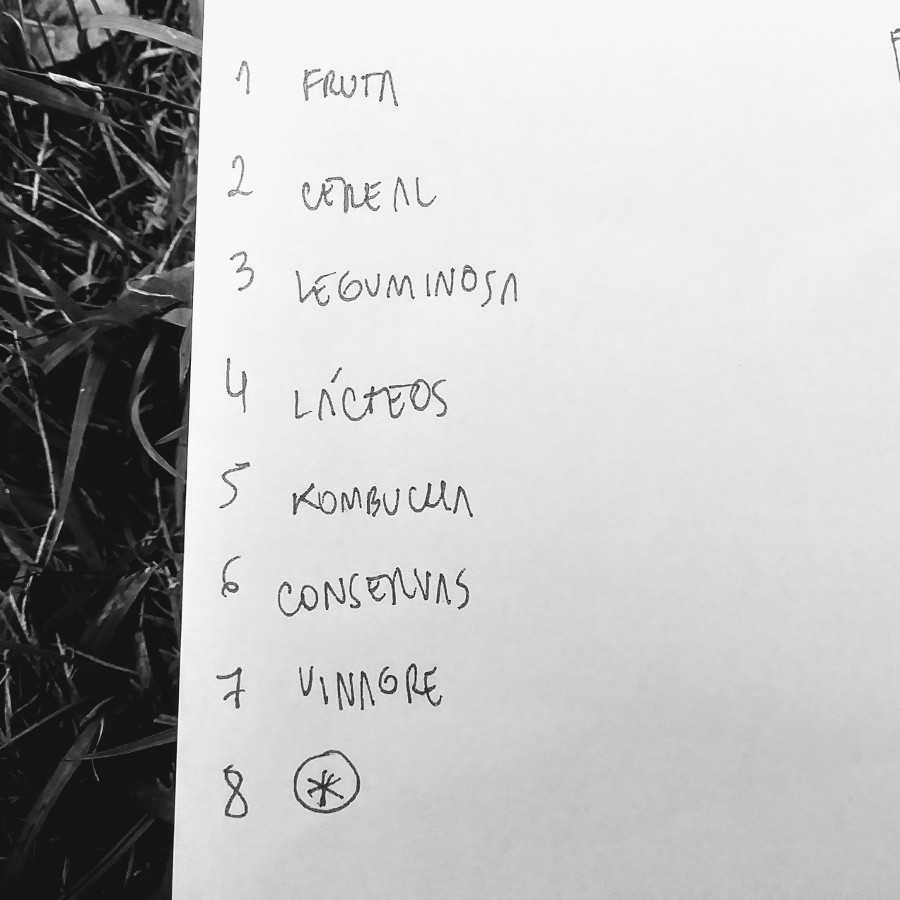 1 FRUTA
2 CEREAL
3 LEGUMINOSA
4 LÁCTEOS
5 KOMBUCHA
6 CONSERVAS
7 VINAGRE
8 *